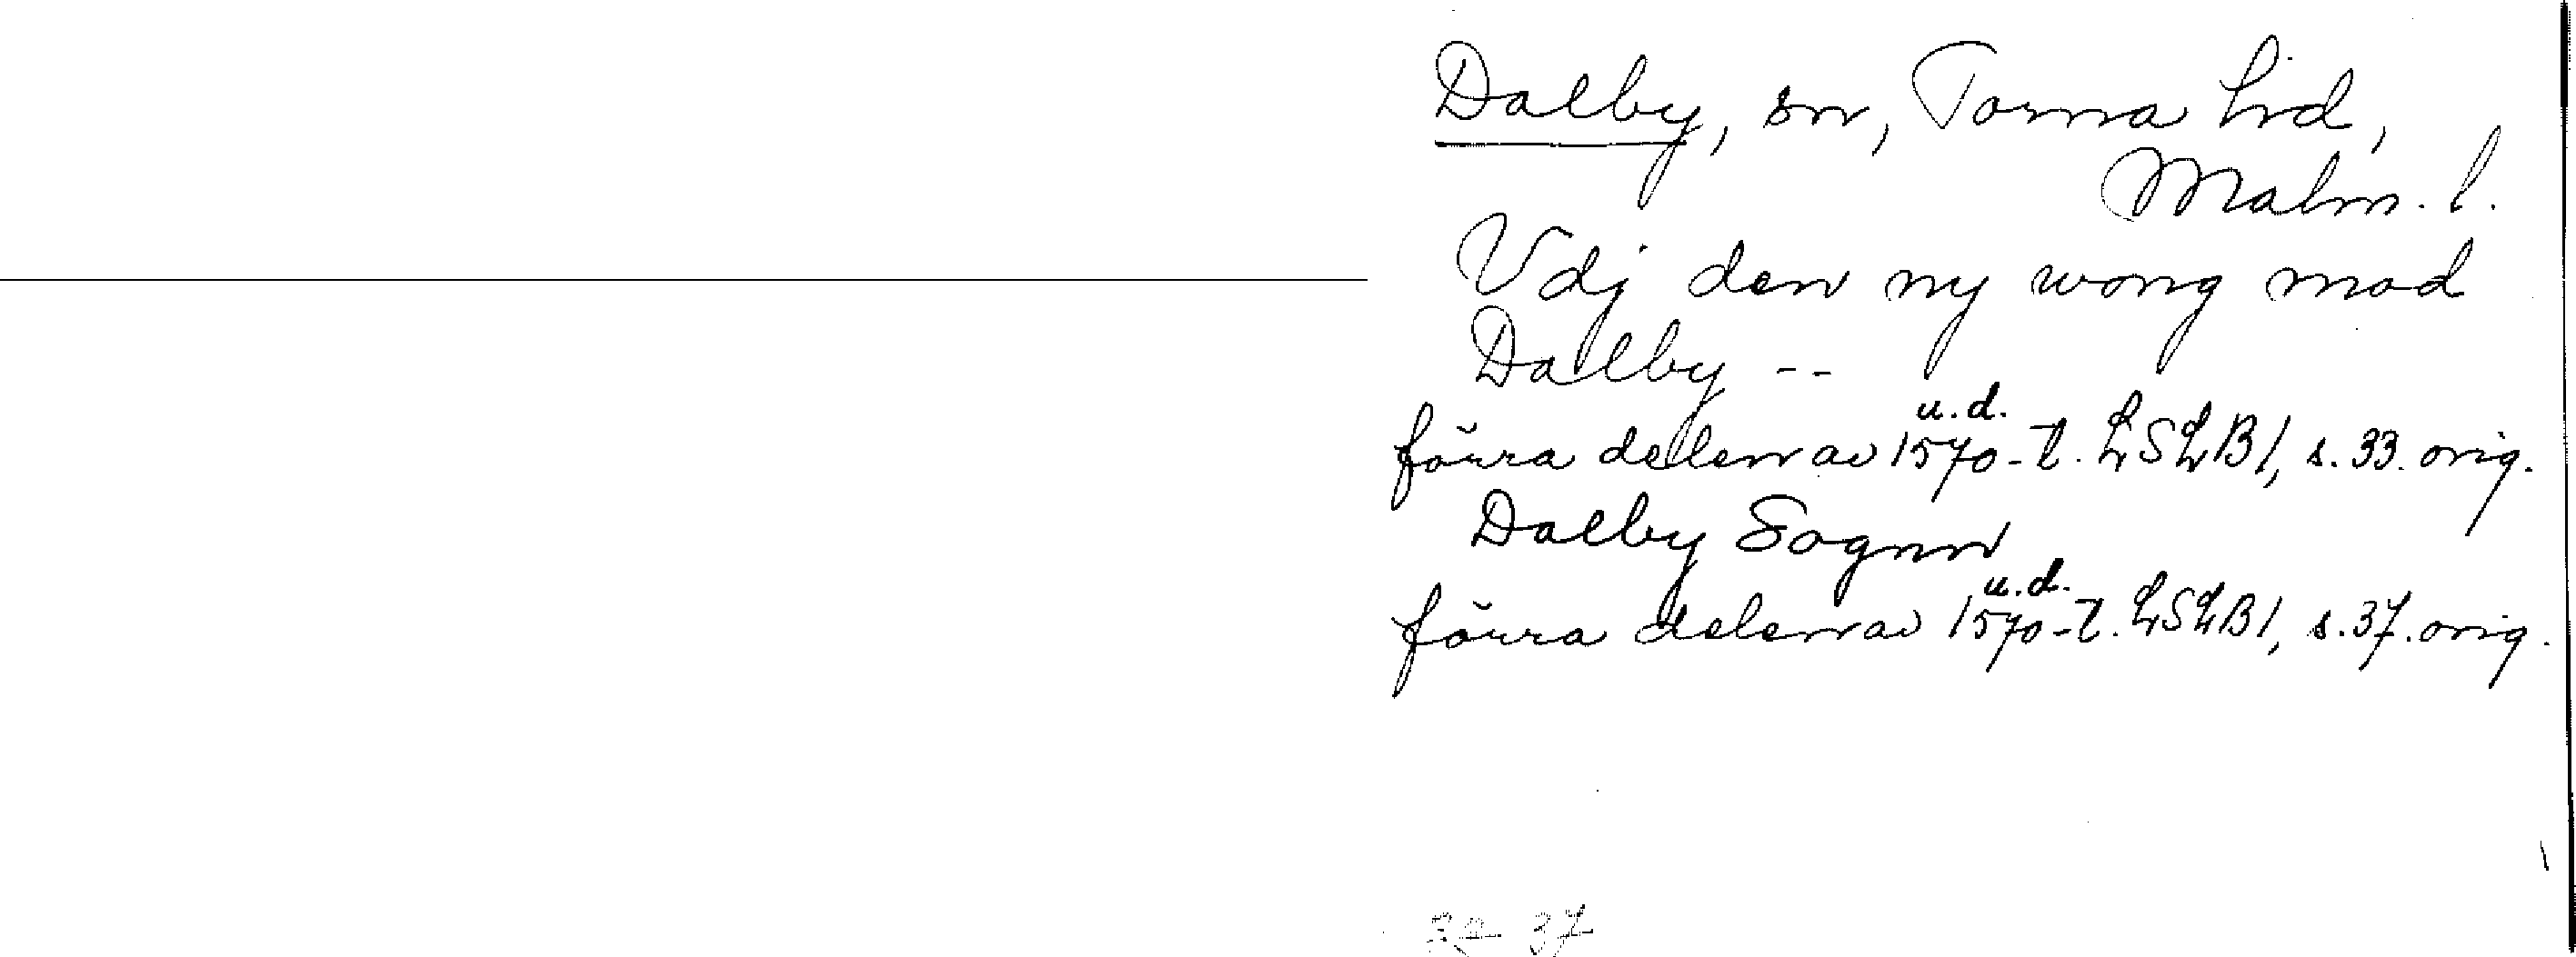 Dalby, sn, Torna hd,
Malm. l.
Vdj den ny wong mod
Dalby --
u.d.
förra delen av 1570-t. LSLB1, s. 33. orig.
Dalby Sognn
u.d.
förra delen av 1570-t. LSLB1, s. 37. orig.
37